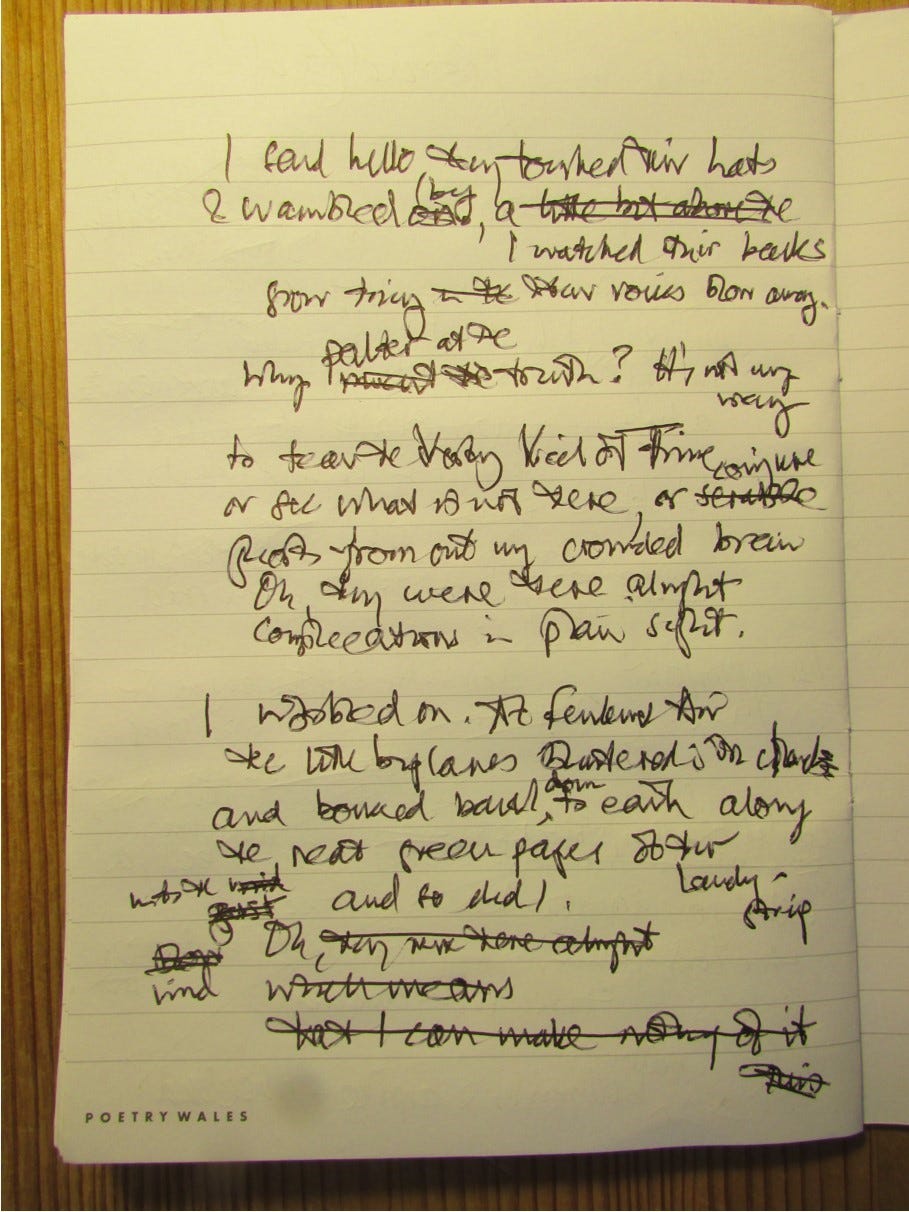 I said hello, they touched their hats
& wandered (by), a little bit above the
I watched their backs
grow tiny in the their voices blow away.
palter at the
Why truth? It's not my
way
to tear the Veil of Time, conjure
or see what is not there, or scrabble
ghosts from out my crowded brain
Oh, they were there alright
complications in plain sight.
I wobbled on. At Fenland Air
the little byplanes clouds
and bounced back, down to earth along
the neat green pages of their
into the and so did I. Landing-
strip
Oh, they were there alright
wind which means
that I can make nothing of it
this
POETRY WALES